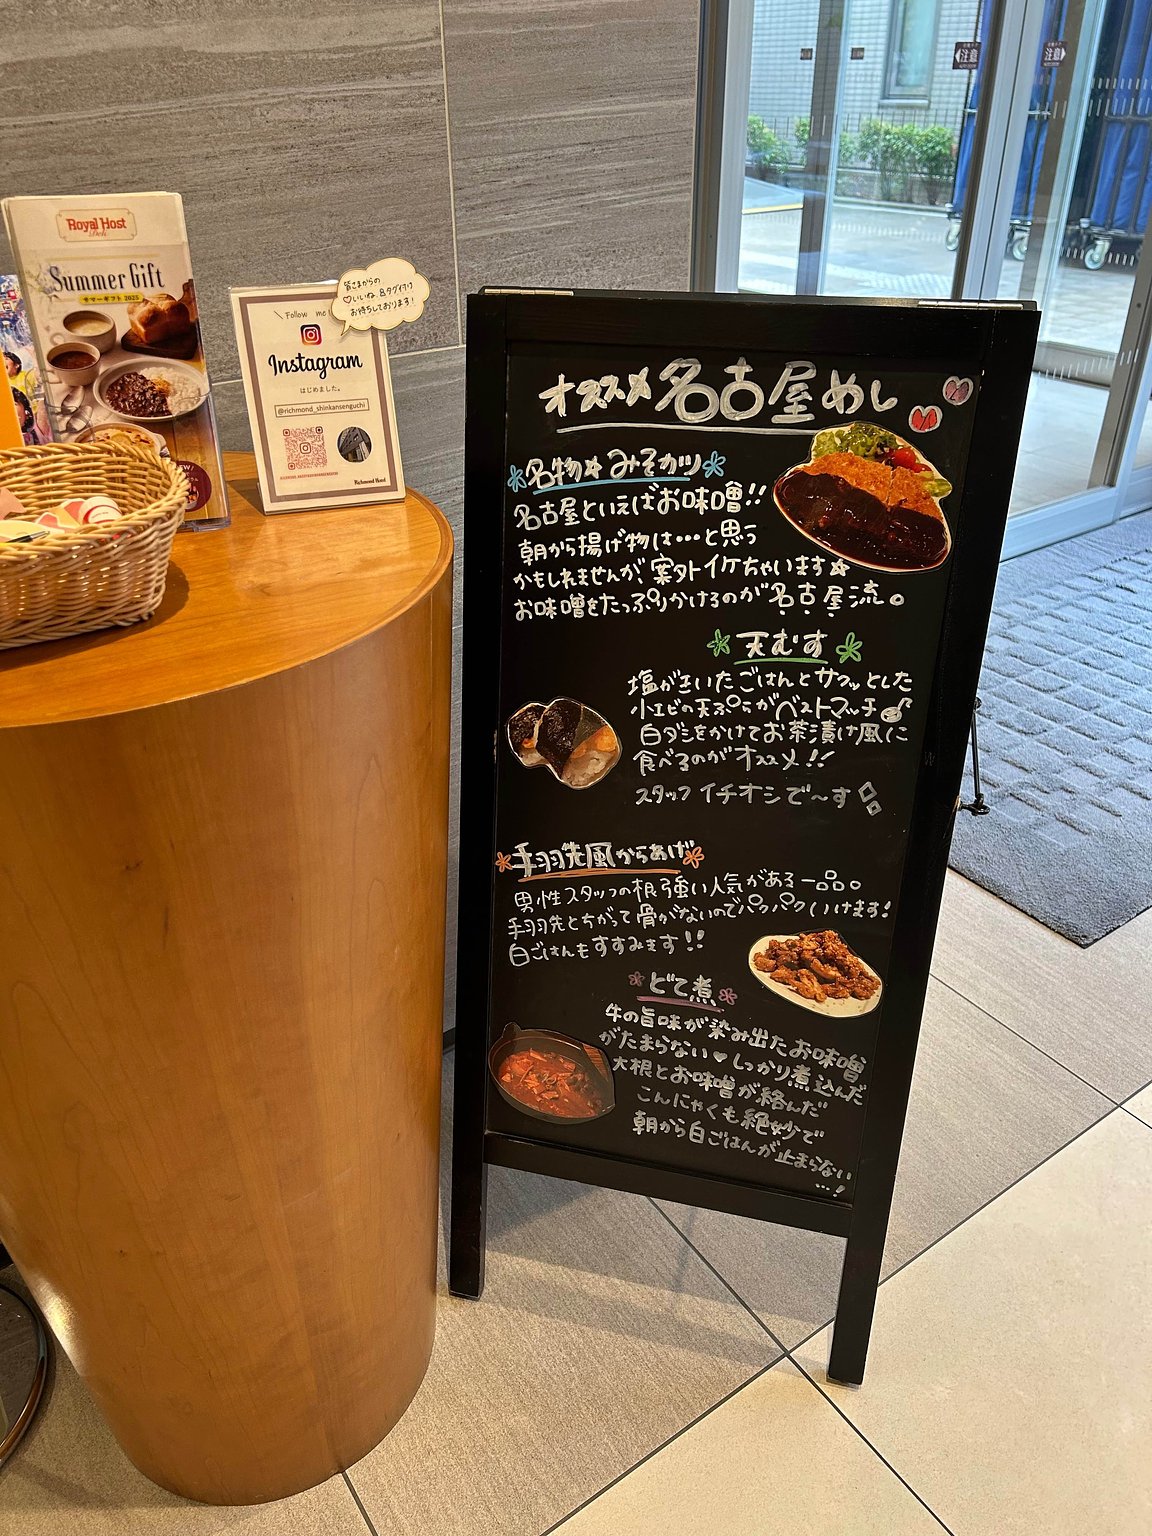 Royal Host
Deli
Summer Gift
サマーギフト 2025
皆さまからの
♡いいね、&タグ付け
お待ちしております!
\ Follow me
Instagram
はじめました。
@richmond_shinkansenguchi
Richmond Hotel
注意
注意
オススメ名古屋めし
名物☆みそカツ
名古屋といえばお味噌!!
朝から揚げ物は…と思う
かもしれませんが、案外イケちゃいます☆
お味噌をたっぷりかけるのが名古屋流。
天むす
塩が主いたごはんとサクッとした
小エビの天ぷらがベストマッチ♪
白ダシをかけてお茶漬け風に
食べるのがオススメ!!
スタッフイチオシで〜す
手羽先風からあげ
男性スタッフの根強い人気がある一品。
手羽先とちがって骨がないのでパクパクいけます!
白ごはんもすすみます!!
どて煮
牛の旨味が染み出たお味噌
がたまらない♥しっかり煮込んだ
大根とお味噌が絡んだ
こんにゃくも絶妙で
朝から白ごはんが止まらない
…!